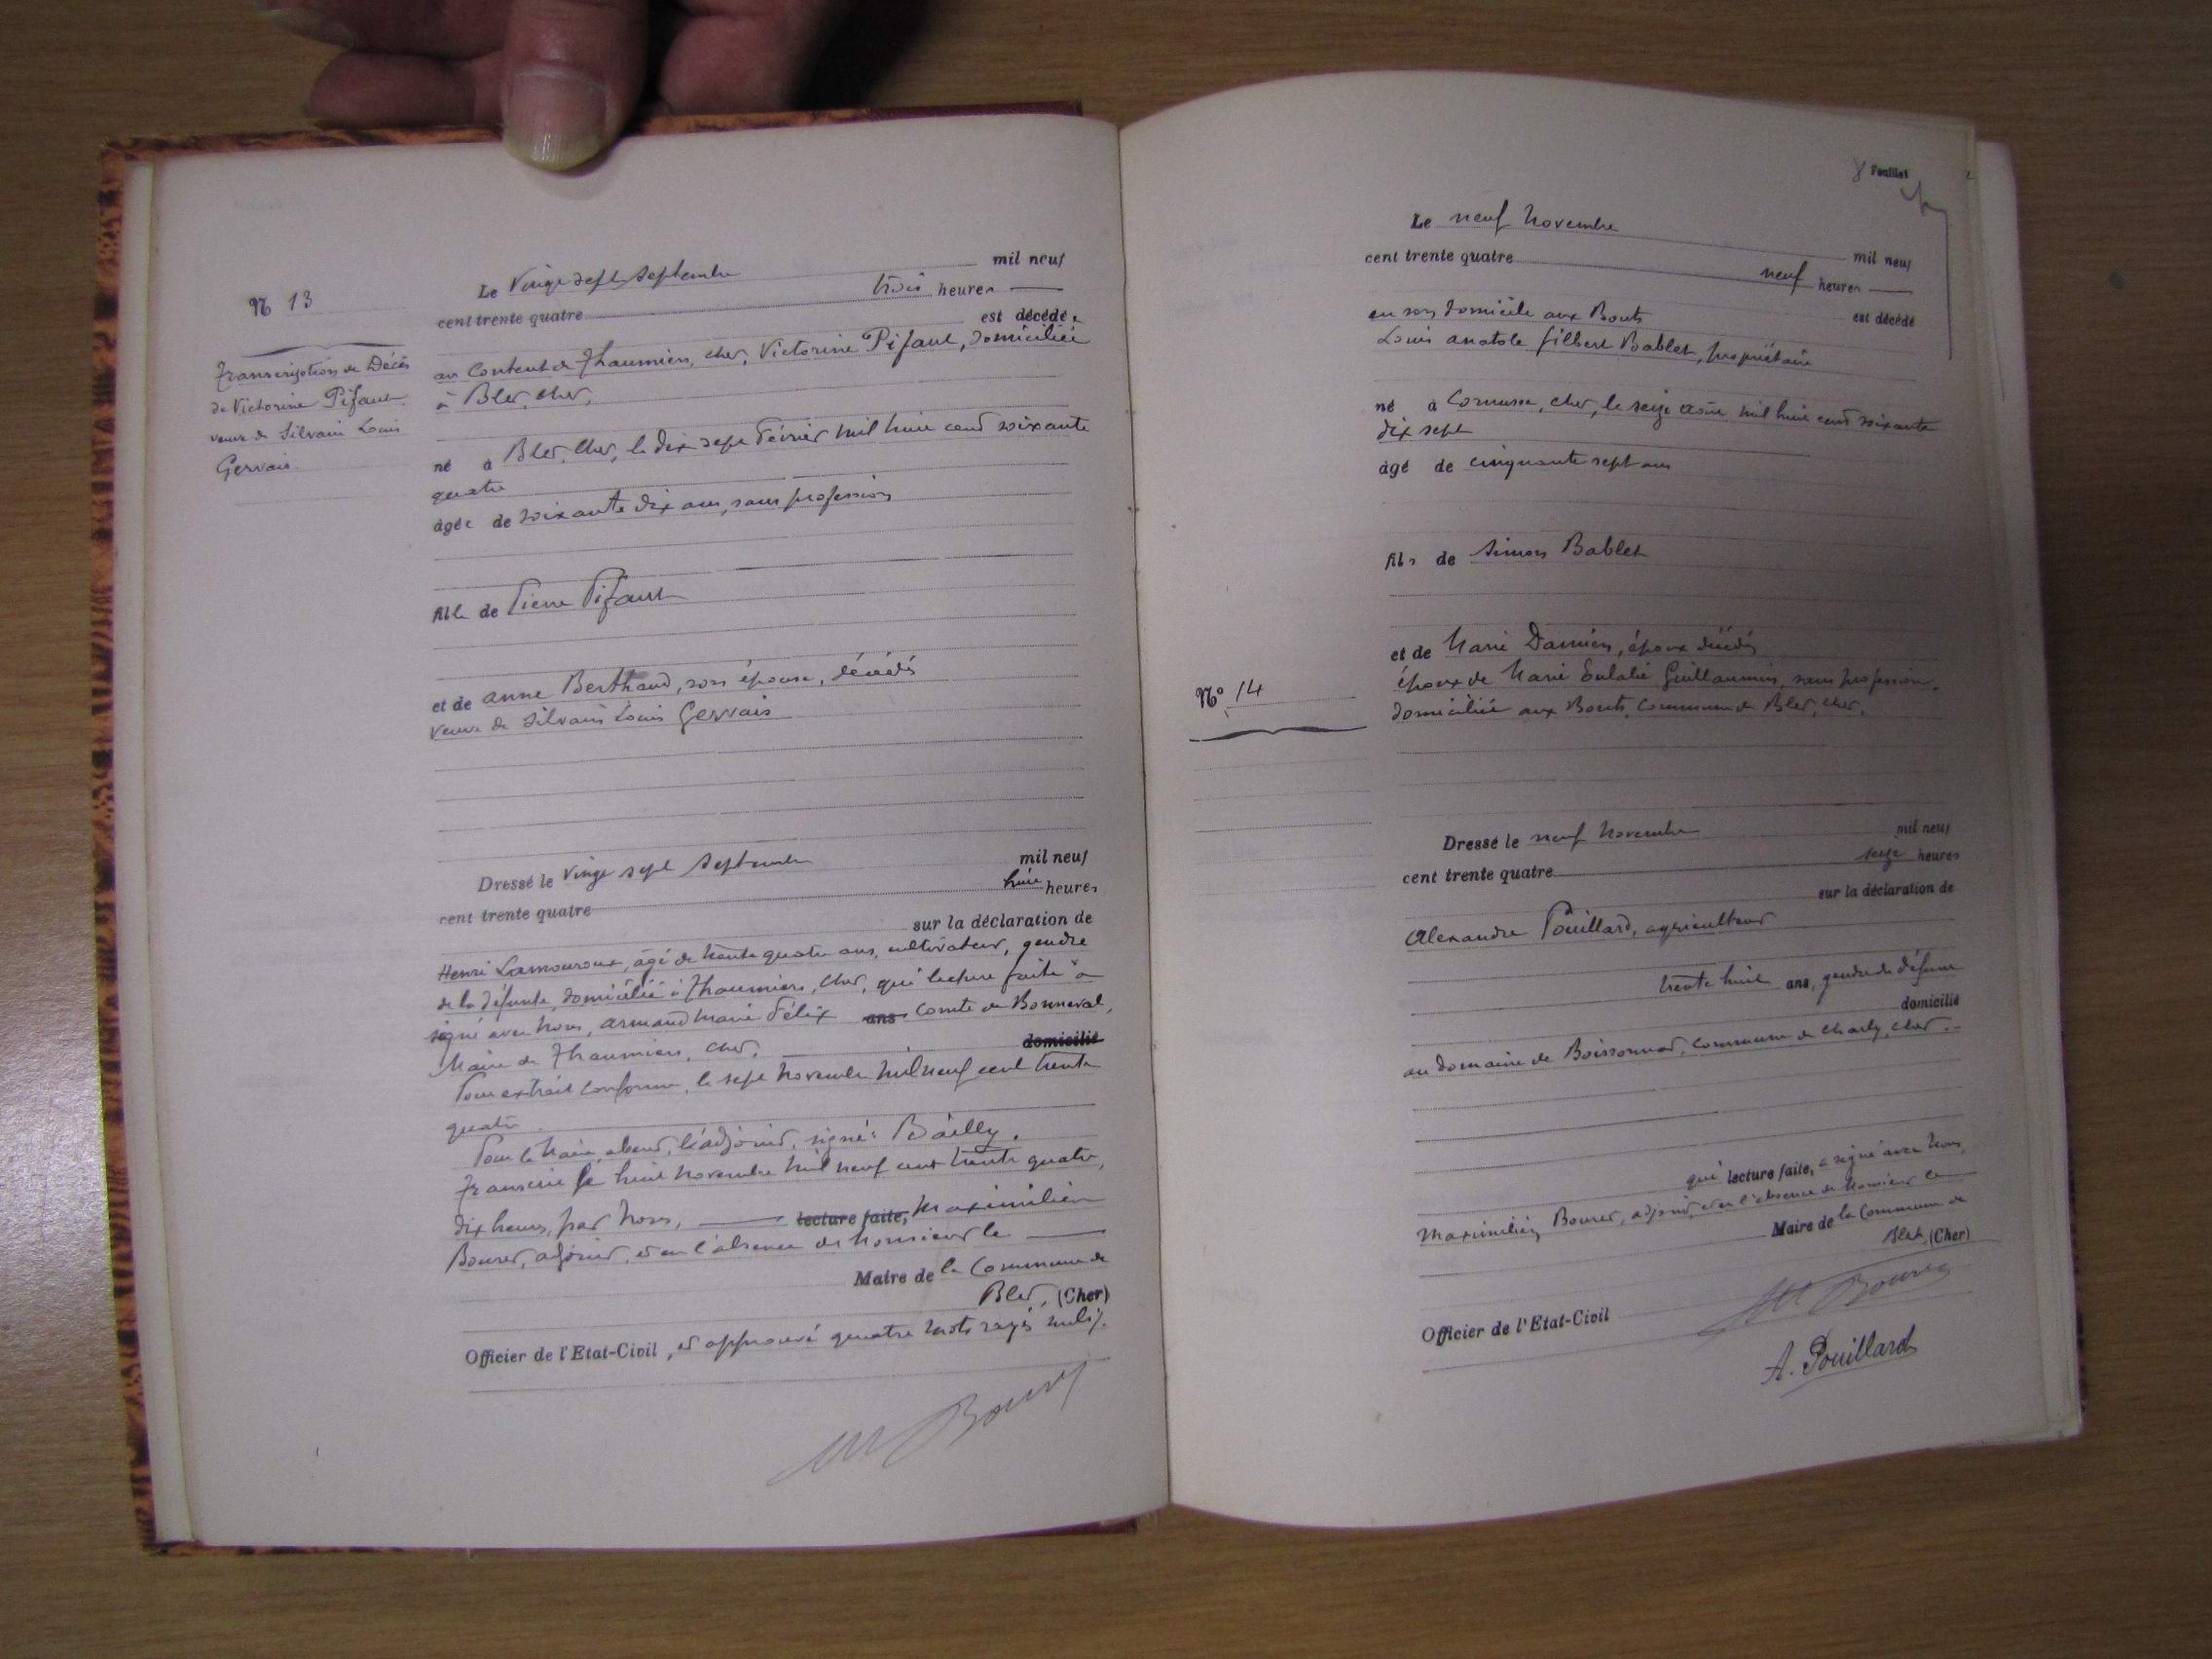 N° 13
Transcription de Décès
de Victorine Pifaut
veuve de Silvain Louis
Gervais
Le vingt sept septembre mil neuf
cent trente quatre trois heures
est décédée
au Content de Thaumiers, Cher, Victorine Pifaut, domiciliée
à Blet, Cher,
né à Blet, Cher, le dix sept Février mil huit cent soixante
quatre
âgée de soixante dix ans, sans profession
fille de Pierre Pifaut
et de Anne Berthaud, son épouse, décédés
veuve de Silvain Louis Gervais
Dressé le vingt sept septembre mil neuf
cent trente quatre huit heures
sur la déclaration de
Henri Lamouroux, âgé de trente quatre ans, cultivateur, gendre
de la défunte, domicilié à Thaumiers, Cher, qui lecture faite a
signé avec nous, Armand Marie Félix ans Comte de Bonneval,
Maire de Thaumiers, Cher, domicilié
Pour extrait conforme, le sept novembre mil neuf cent trente
quatre.
Pour le Maire, absent, l'adjoint, signé: Bailly.
Transcrit le huit novembre mil neuf cent trente quatre,
dix heures, par nous, lecture faite, Maximilien
Bouret, adjoint, et en l'absence de Monsieur le
Maire de la Commune de
Blet, (Cher)
Officier de l'Etat-Civil, et approuvé quatre mots rayés nuls.
M Bouret
Feuillet
Le neuf novembre mil neuf
cent trente quatre neuf heures
en son domicile aux Bouts est décédé
Louis Anatole Gilbert Bablet, propriétaire
N° 14
né à Cornusse, Cher, le seize août mil huit cent soixante
dix sept
âgé de cinquante sept ans
fils de Simon Bablet
et de Marie Damien, époux décédés
époux de Marie Eulalie Guillaumin, sans profession,
domicilié aux Bouts, Commune de Blet, Cher.
Dressé le neuf novembre mil neuf
cent trente quatre seize heures
sur la déclaration de
Alexandre Pouillard, agriculteur
trente huit ans, gendre du défunt
domicilié
au domaine de Boissonnat, Commune de Charly, Cher.
qui lecture faite, a signé avec nous,
Maximilien Bouret, adjoint, et en l'absence de Monsieur le
Maire de la Commune de
Blet, (Cher)
Officier de l'Etat-Civil
M Bouret
A. Pouillard